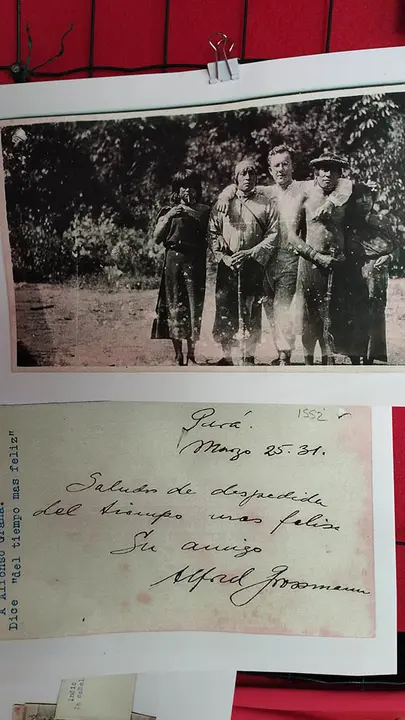 Pará.
1552
Marzo 25-31.
Saludos de despedida
del tiempo mas felise
Su amigo
Alfred Grossmann
A Alfonso Graña.
Dice "del tiempo mas feliz"